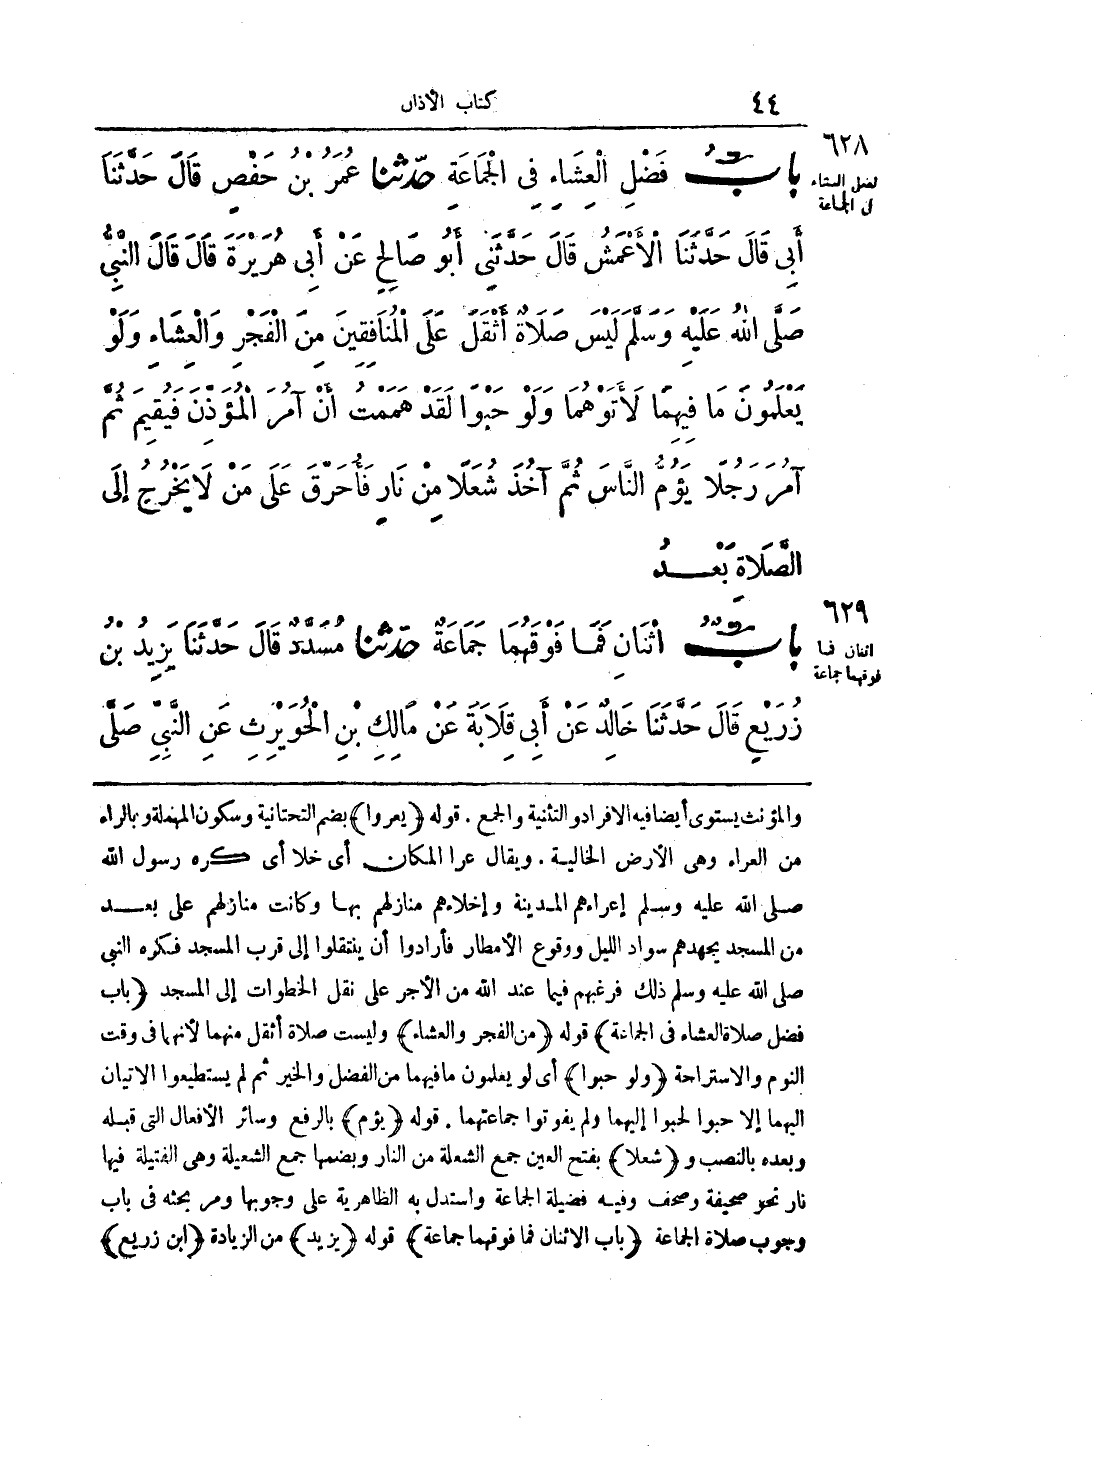 ٤٤ كتاب الأذان
٦٢٨
فضل العشاء
فى الجماعة
بابُ فَضْلِ الْعِشَاءِ فِى الْجَمَاعَةِ حدّثنا عُمَرُ بْنُ حَفْصٍ قَالَ حَدَّثَنَا
أَبِى قَالَ حَدَّثَنَا الْأَعْمَشُ قَالَ حَدَّثَنِى أَبُو صَالِحٍ عَنْ أَبِى هُرَيْرَةَ قَالَ قَالَ النَّبِىُّ
صَلَّى اللهُ عَلَيْهِ وَسَلَّمَ لَيْسَ صَلَاةٌ أَثْقَلَ عَلَى الْمُنَافِقِينَ مِنَ الْفَجْرِ وَالْعِشَاءِ وَلَوْ
يَعْلَمُونَ مَا فِيهِمَا لَأَتَوْهُمَا وَلَوْ حَبْوًا لَقَدْ هَمَمْتُ أَنْ آمُرَ الْمُؤَذِّنَ فَيُقِيمَ ثُمَّ
آمُرَ رَجُلًا يَؤُمُّ النَّاسَ ثُمَّ آخُذَ شُعَلًا مِنْ نَارٍ فَأُحَرِّقَ عَلَى مَنْ لَا يَخْرُجُ إِلَى
الصَّلَاةِ بَعْدُ
٦٢٩
اثنان فما
فوقهما جماعة
بابٌ اثْنَانِ فَمَا فَوْقَهُمَا جَمَاعَةٌ حدّثنا مُسَدَّدٌ قَالَ حَدَّثَنَا يَزِيدُ بْنُ
زُرَيْعٍ قَالَ حَدَّثَنَا خَالِدٌ عَنْ أَبِى قِلَابَةَ عَنْ مَالِكِ بْنِ الْحُوَيْرِثِ عَنِ النَّبِىِّ صَلَّى
والمؤنث يستوى أيضا فيه الافراد والتثنية والجمع . قوله ﴿يعروا﴾ بضم التحتانية وسكون المهملة وبالراء
من العراء وهى الأرض الخالية . ويقال عرا المكان أى خلا أى كره رسول الله
صلى الله عليه وسلم إعراءهم المدينة وإخلاءهم منازلهم بها وكانت منازلهم على بعد
من المسجد يجهدهم سواد الليل ووقوع الأمطار فأرادوا أن ينتقلوا إلى قرب المسجد فكره النبى
صلى الله عليه وسلم ذلك فرغبهم فيما عند الله من الأجر على نقل الخطوات إلى المسجد ﴿باب
فضل صلاة العشاء فى الجماعة﴾ قوله ﴿من الفجر والعشاء﴾ وليست صلاة أثقل منهما لأنهما فى وقت
النوم والاستراحة ﴿ولو حبوا﴾ أى لو يعلمون ما فيهما من الفضل والخير ثم لم يستطيعوا الاتيان
اليهما إلا حبوا لحبوا إليهما ولم يفوتوا جماعتهما . قوله ﴿يؤم﴾ بالرفع وسائر الأفعال التى قبله
وبعده بالنصب و ﴿شعلا﴾ بفتح العين جمع الشعلة من النار وبضمها جمع الشعيلة وهى الفتيلة فيها
نار نحو صحيفة وصحف وفيه فضيلة الجماعة واستدل به الظاهرية على وجوبها ومر بحثه فى باب
وجوب صلاة الجماعة ﴿باب الاثنان فما فوقهما جماعة﴾ قوله ﴿يزيد﴾ من الزيادة ﴿ابن زريع﴾